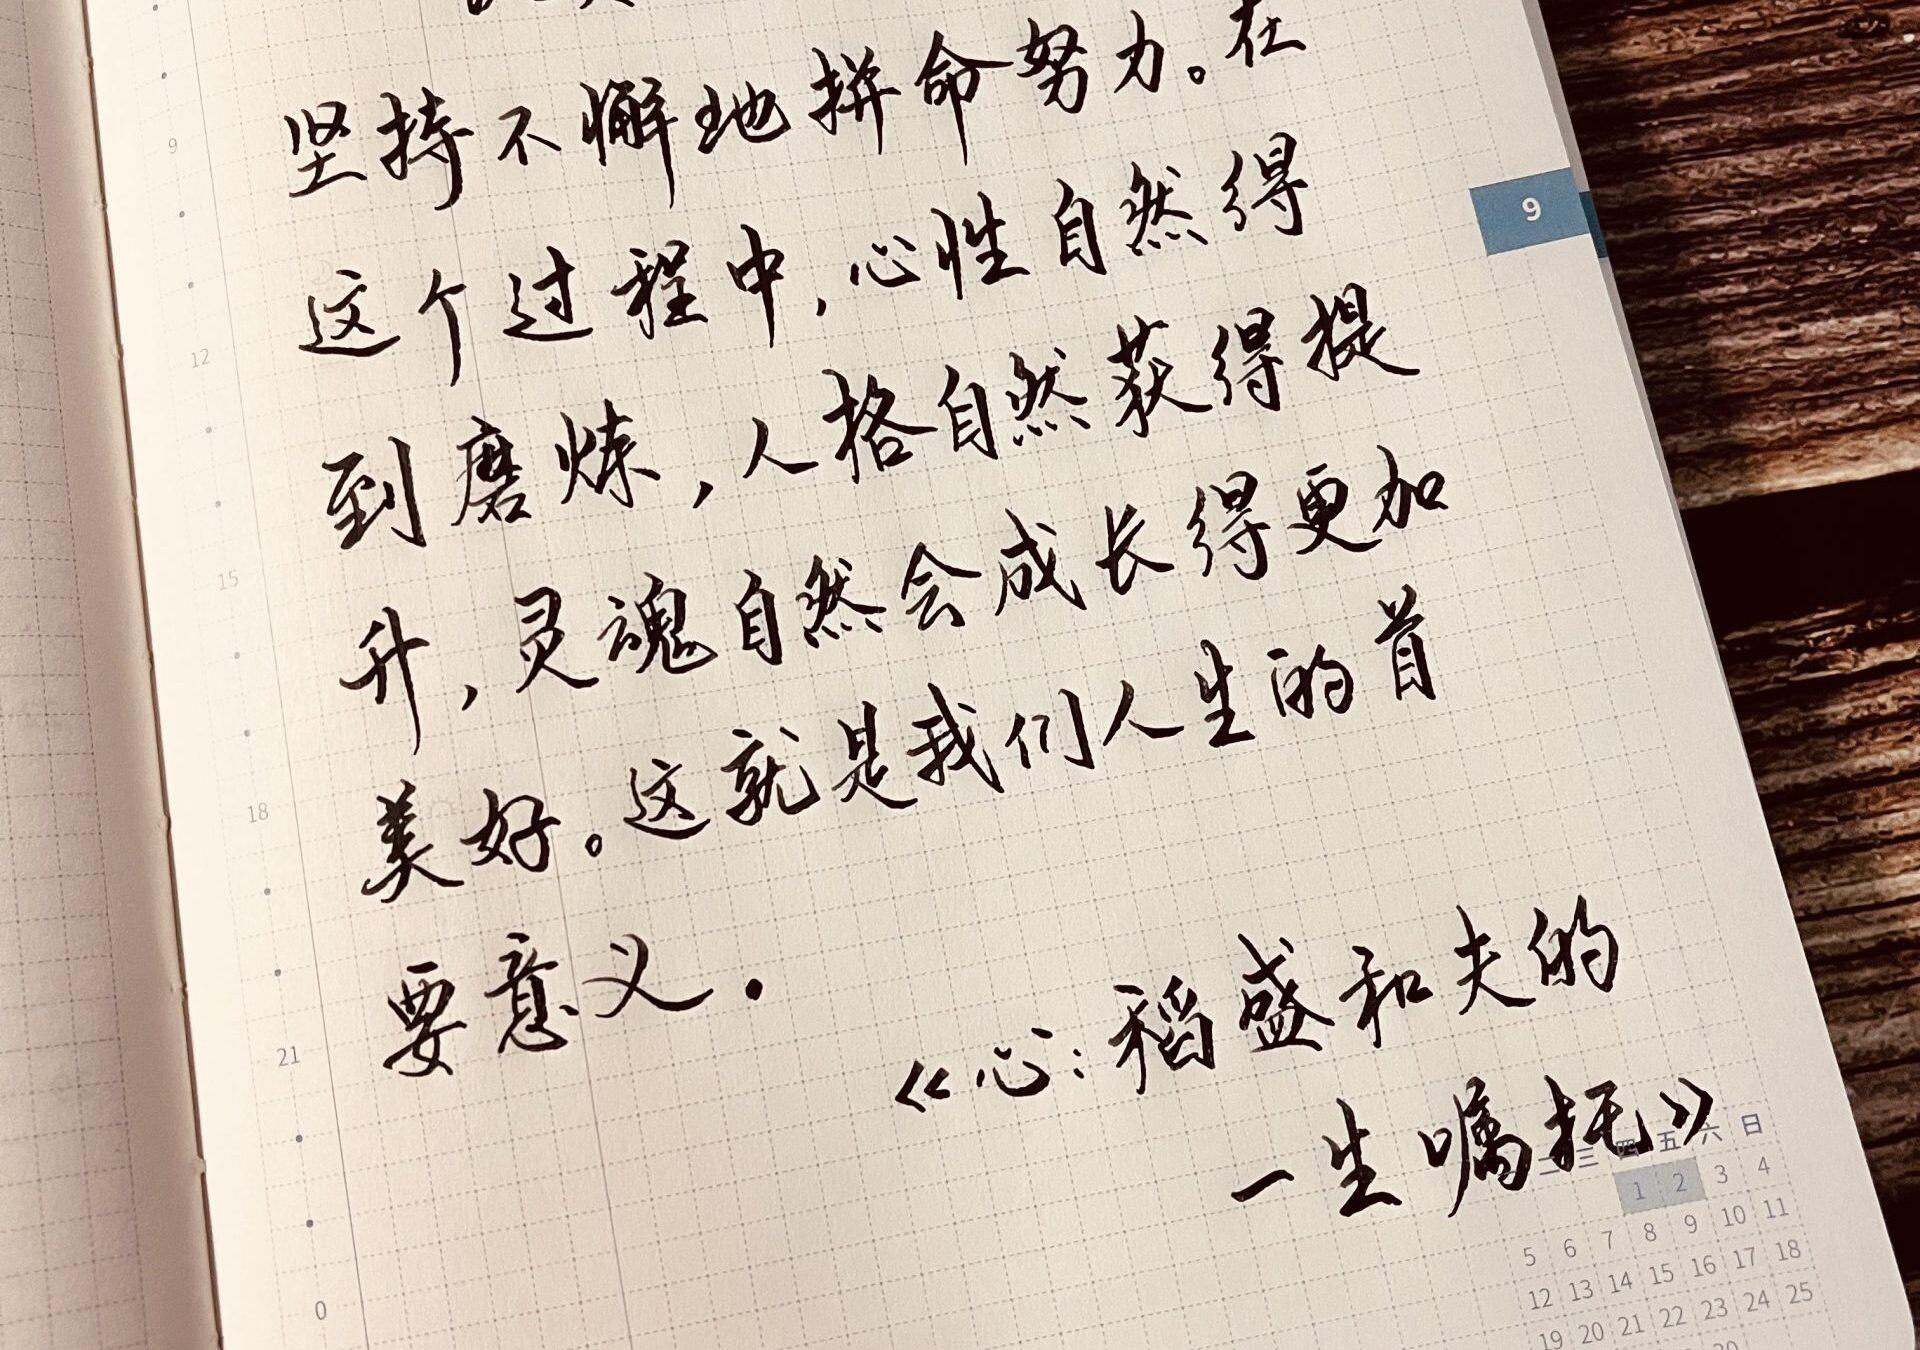 坚持不懈地拼命努力。在
这个过程中,心性自然得
到磨炼,人格自然获得提
升,灵魂自然会成长得更加
美好。这就是我们人生的首
要意义.
《心:稻盛和夫的
一生嘱托》
9
9
12
15
18
21
0
二 三 四 五 六 日
1 2 3 4
5 6 7 8 9 10 11
12 13 14 15 16 17 18
19 20 21 22 23 24 25